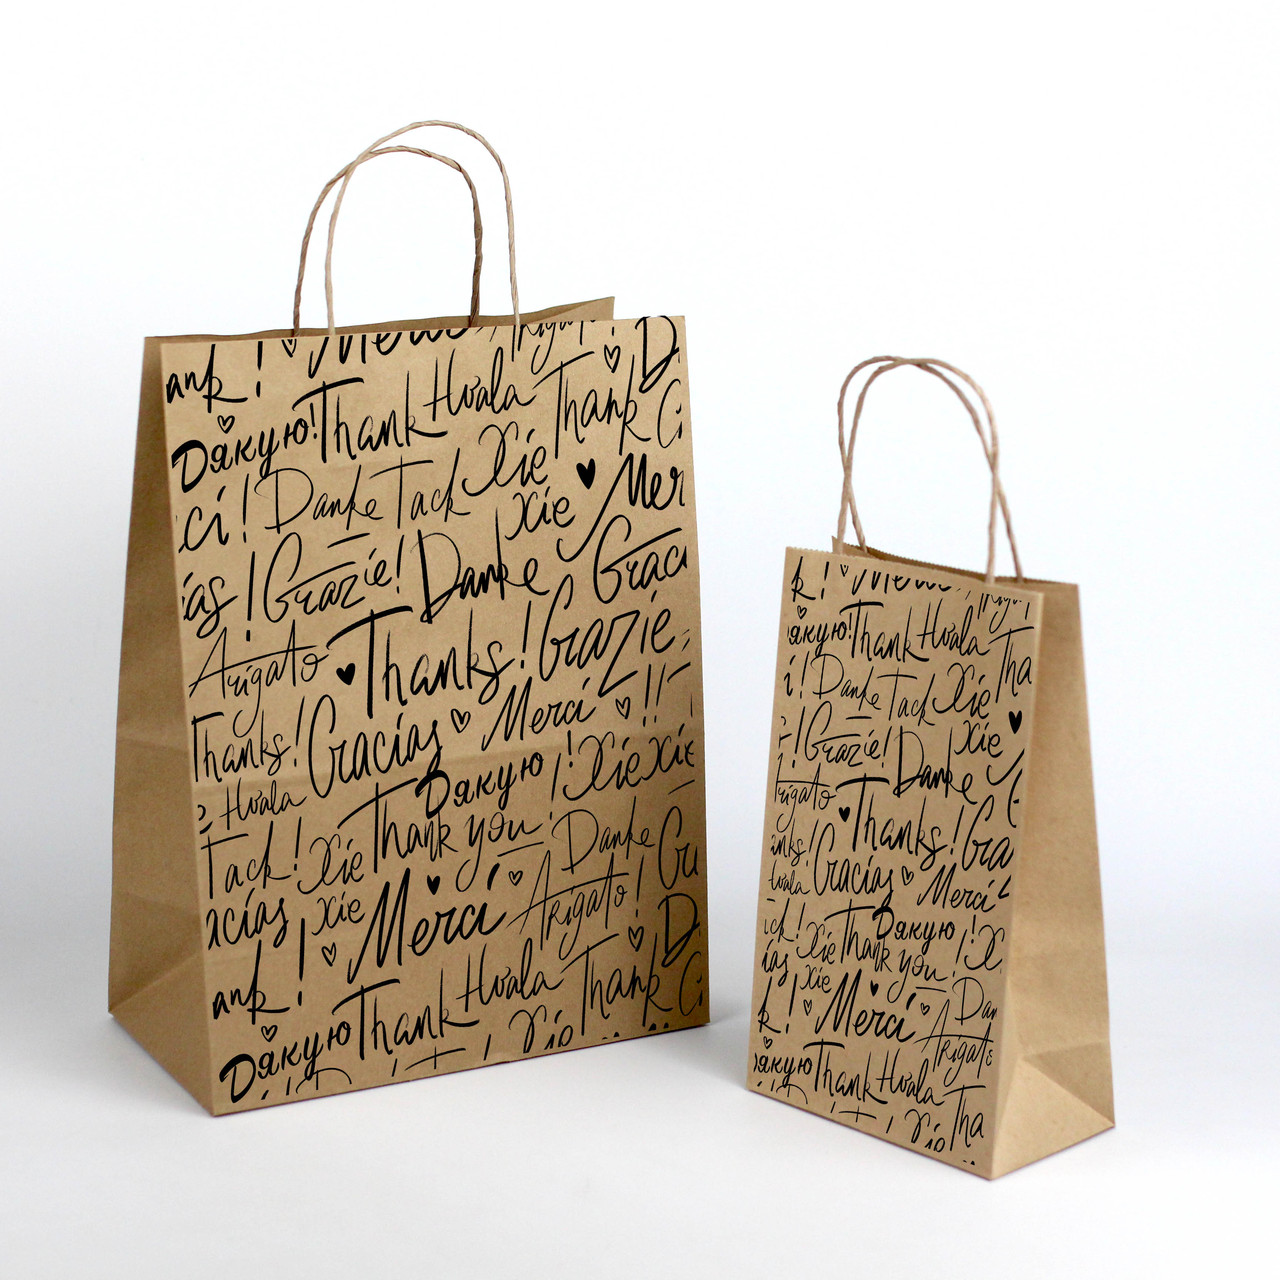 ank! Merci Arigato
Дякую! Thank Hvala Thank
ci! Danke Tack Xie Xie Mer
as! Grazie! Danke Graci
Arigato Thanks! Grazie
Thanks! Gracias Merci !!
Hvala Дякую! Xie Xie
Tack! Xie Thank you! Danke Gr
acias Xie Merci Arigato!
ank! Hvala Thank
Дякую Thank
k! Merci
якую! Thank Hvala
i! Danke Tack Xie Tha
! Grazie! Danke Xie
Arigato Thanks! Gra
anks! Gracias Merci
vala Дякую!
ck! Xie Thank you! X
ías Xie Merci Dan
k! Arigato
якую Thank Hvala Tha